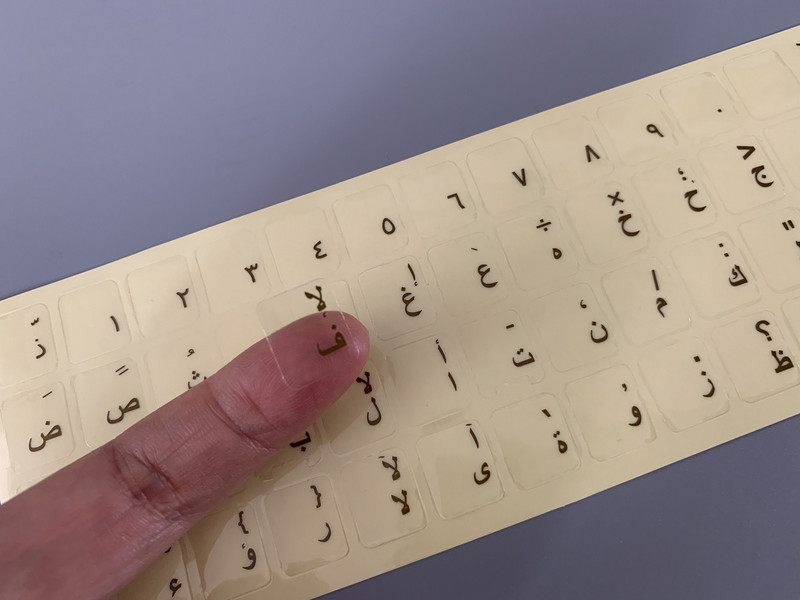 ذ ١ ٢ ٣ ٤ ٥ ٦ ٧ ٨ ٩ ٠
َ ً ُ لإ إ ` ÷ × ؛
ض ص ث ف غ ع ه خ ح ج
لأ أ ـ ، / : "
ب ل ا ت ن م ك
لآ آ ' . ؟
ء ؤ ر لا ى ة و ز ظ